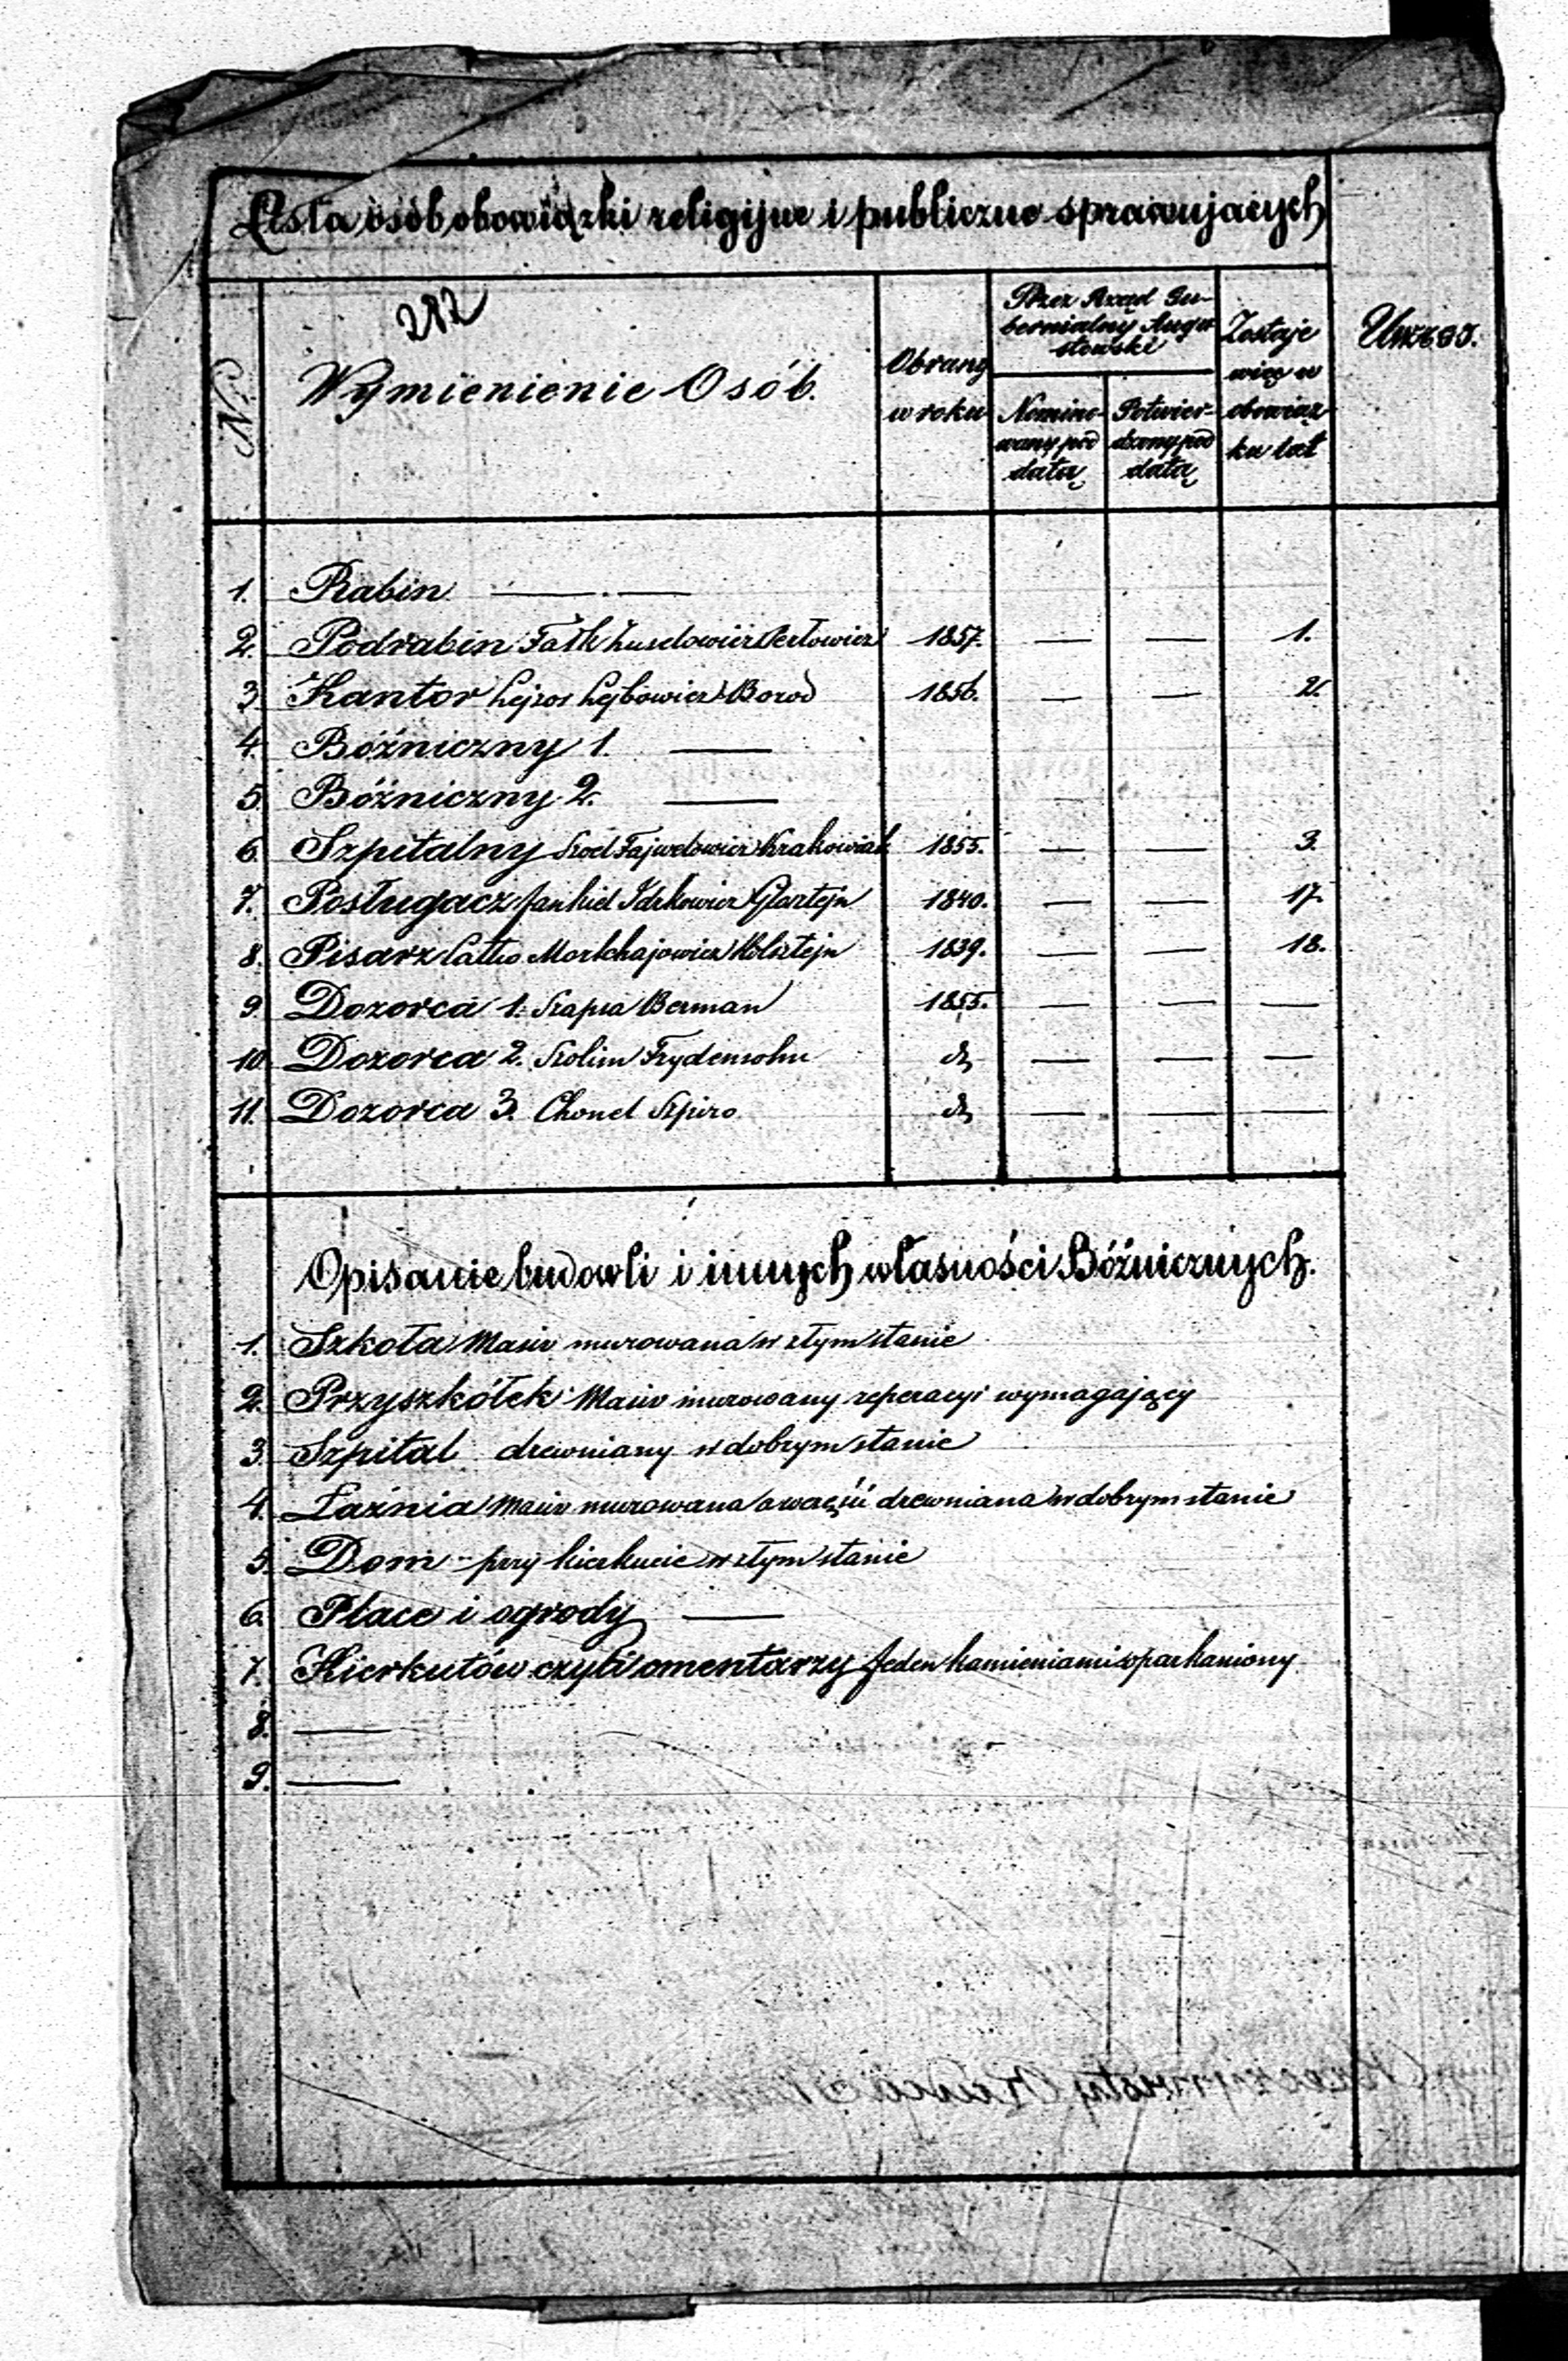 Lista osób obowiązki religijne i publiczne sprawujących
282
No.
Wymienienie Osób.
Obrany
w roku
Przez Rząd Gu-
bernialny Augu-
stowski
Nomino-
wany pod
datą
Potwier-
dzony pod
datą
Zostaje
więc w
obowiąz
ku lat
1. Rabin — . —
2. Podrabin Falk 1857. — — 1.
3. Kantor Lejzor Lejbowicz Borod 1856. — — 2.
4. Bóźniczny 1. —
5. Bóźniczny 2. —
6. Szpitalny Fajwelowicz Krakowiak 1855. — — 3.
7. Posługacz Jankiel Glaztejn 1840. — — 17.
8. Pisarz Mortchajowicz Holsztejn 1839. — — 18.
9. Dozorca 1. Berman 1855. — — —
10. Dozorca 2. Szolim Frydensohn — — —
11. Dozorca 3. Chonel Szpiro — — —
Opisanie budowli i innych własności Bóźnicznych.
1. Szkoła Masiv murowana w złym stanie
2. Przyszkółek Masiv murowany reperacyi wymagający
3. Szpital drewniany w dobrym stanie
4. Łaźnia Masiv murowana a w części drewniana w dobrym stanie
5. Dom - przy kierkucie w złym stanie
6. Place i ogrody —
7. Kierkutów czyli cmentarzy Jeden kamieniami oparkaniony
8. —
9. —